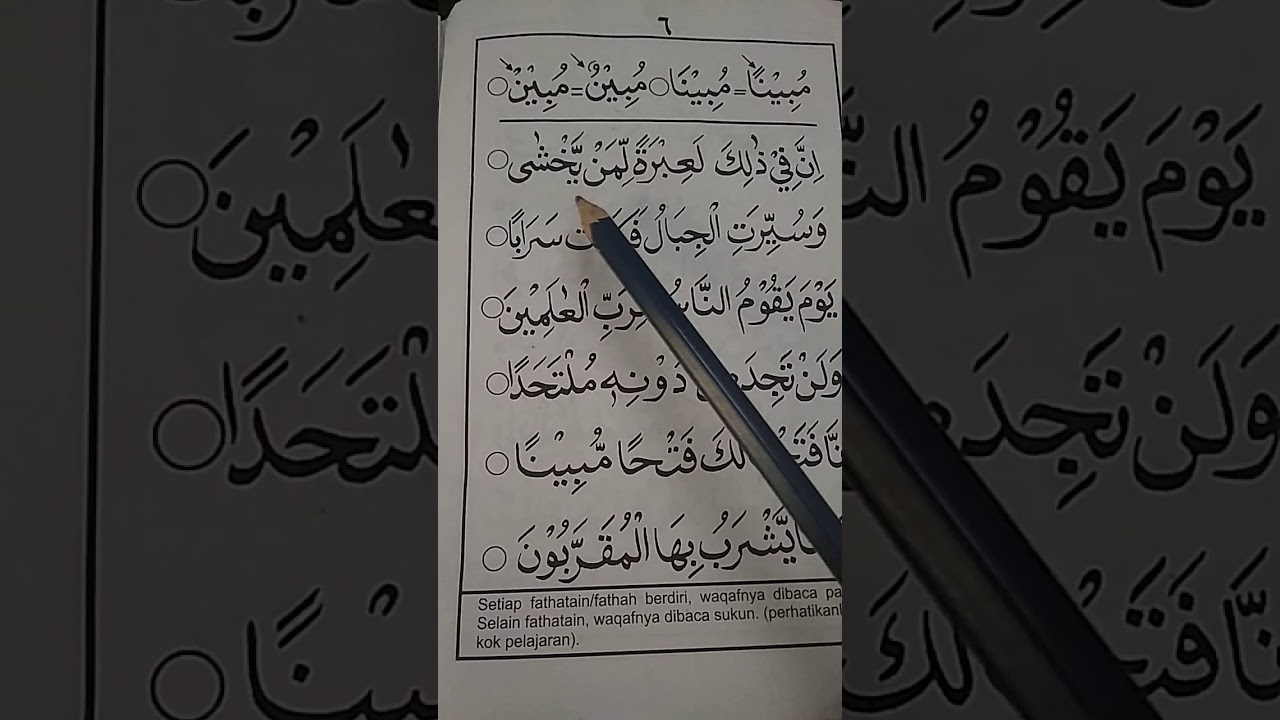 ٦
مُبِيْنًا = مُبِيْنَا ○ مُبِيْنٌ = مُبِيْنْ ○
اِنَّ فِيْ ذٰلِكَ لَعِبْرَةً لِّمَنْ يَّخْشٰى ○
وَسُيِّرَتِ الْجِبَالُ سَرَابًا ○
يَوْمَ يَقُوْمُ النَّاسُ لِرَبِّ الْعٰلَمِيْنَ ○
وَلَنْ تَجِدَ دُوْنِهٖ مُلْتَحَدًا ○
لَكَ فَتْحًا مُّبِيْنًا ○
يَّشْرَبُ بِهَا الْمُقَرَّبُوْنَ ○
Setiap fathatain/fathah berdiri, waqafnya dibaca
Selain fathatain, waqafnya dibaca sukun. (perhatikan
kok pelajaran).